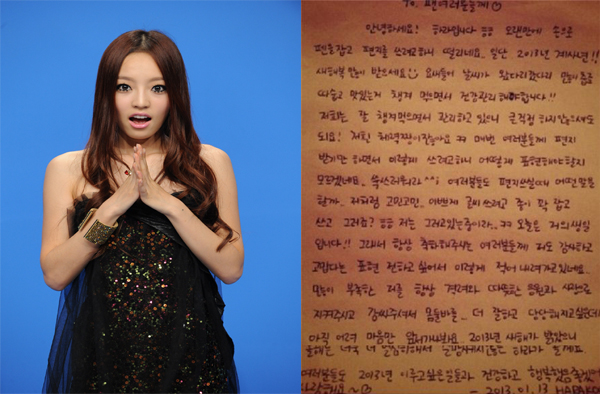 To. 팬여러분들께
안녕하세요! 하라입니다 ㅎㅎ 오랜만에 손으로
펜을잡고 편지를 쓰려고하니 떨리네요. 일단 2013년 계사년!!
새해복 많이 받으세요 요새들어 날씨가 왔다리갔다리 많이 춥죠
따습고 맛있는거 챙겨 먹으면서 건강관리 해야합니다!!
저희는 잘 챙겨먹으면서 관리하고 있으니 큰걱정 하지않으셔도
되요! 저흰 체력짱이잖아요 ㅋㅋ 매번 여러분들께 편지
받기만 하면서 이렇게 쓰려고하니 어떻게 표현해야할지
모르겠네요.. 쑥스러워라 ^^; 여러분들도 편지쓰실때 어떤말을
할까.. 저처럼 고민고민, 이쁘게 글씨쓰려고 펜이 꽉 잡고
쓰고 그러죠? ㅎㅎ 저는 그러고있는중이라.. ㅋㅋ 오늘은 저의생일
입니다!! 그래서 항상 축하해주시는 여러분들께 저도 감사하고
고맙다는 표현 전하고 싶어서 이렇게 적어 내려가고있네요..
많이 부족한 저를 항상 격려와 따뜻한 응원과 사랑으로
지켜주시고 감싸주셔서 몸둘바를.. 더 잘하고 당당해지고싶은데
아직 어려 마음만 앞서가나봐요.. 2013년 새해가 밝았으니
올해는 더욱 더 열심히해서 하라가 될게요
여러분들도 2013년 이루고싶은일들과 건강하고 행복했음좋겠어
사랑해요 ~♡ - 2013. 01. 13 HARAKOO